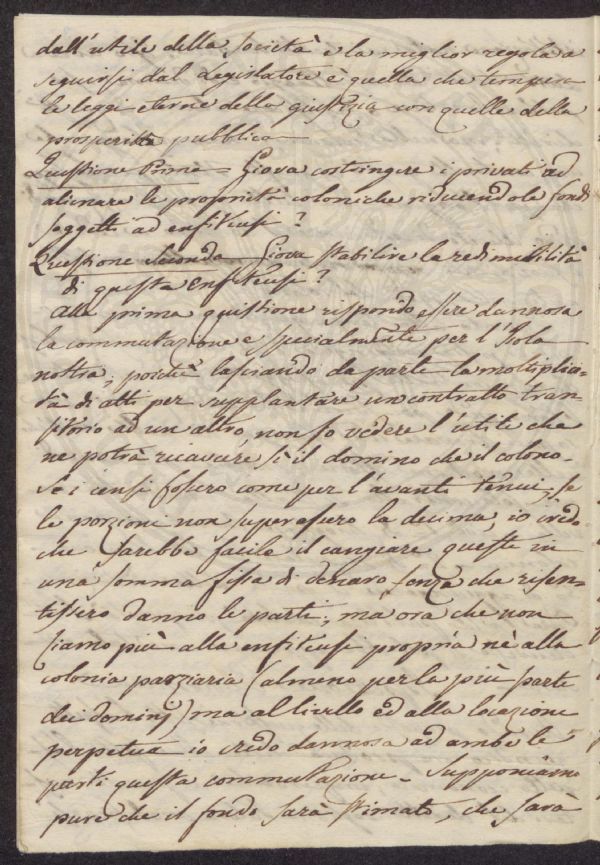 dall'utile della società e la miglior regola a
seguirsi dal Legislatore è quella che tempera
le leggi eterne della giustizia con quelle della
prosperità pubblica
Questione Prima = Giova costringere i privati ad
alienare le proprietà coloniche riducendole fondi
soggetti ad enfiteusi?
Questione Seconda Giova stabilire la redimibilità
di questa enfiteusi?
Alla prima quistione rispondo essere dannosa
la commutazione e specialmente per l'Isola
nostra, poichè lasciando da parte la moltiplici-
tà di atti per supplantare un contratto tran-
sitorio ad un altro, non so vedere l'utile che
ne potrà ricavare sì il domino che il colono.
Se i censi fossero come per l'avanti tenui, se
le porzione non superassero la decima, io credo
che sarebbe facile il cangiare queste in
una somma fissa di denaro senza che risen-
tissero danno le parti; ma ora che non
siamo più alla enfiteusi propria nè alla
colonia parziaria (almeno per la più parte
dei dominj) ma al livello ed alla locazione
perpetua io credo dannosa ad ambe le
parti questa commutazione. Supponiamo
pure che il fondo sarà stimato, che sarà